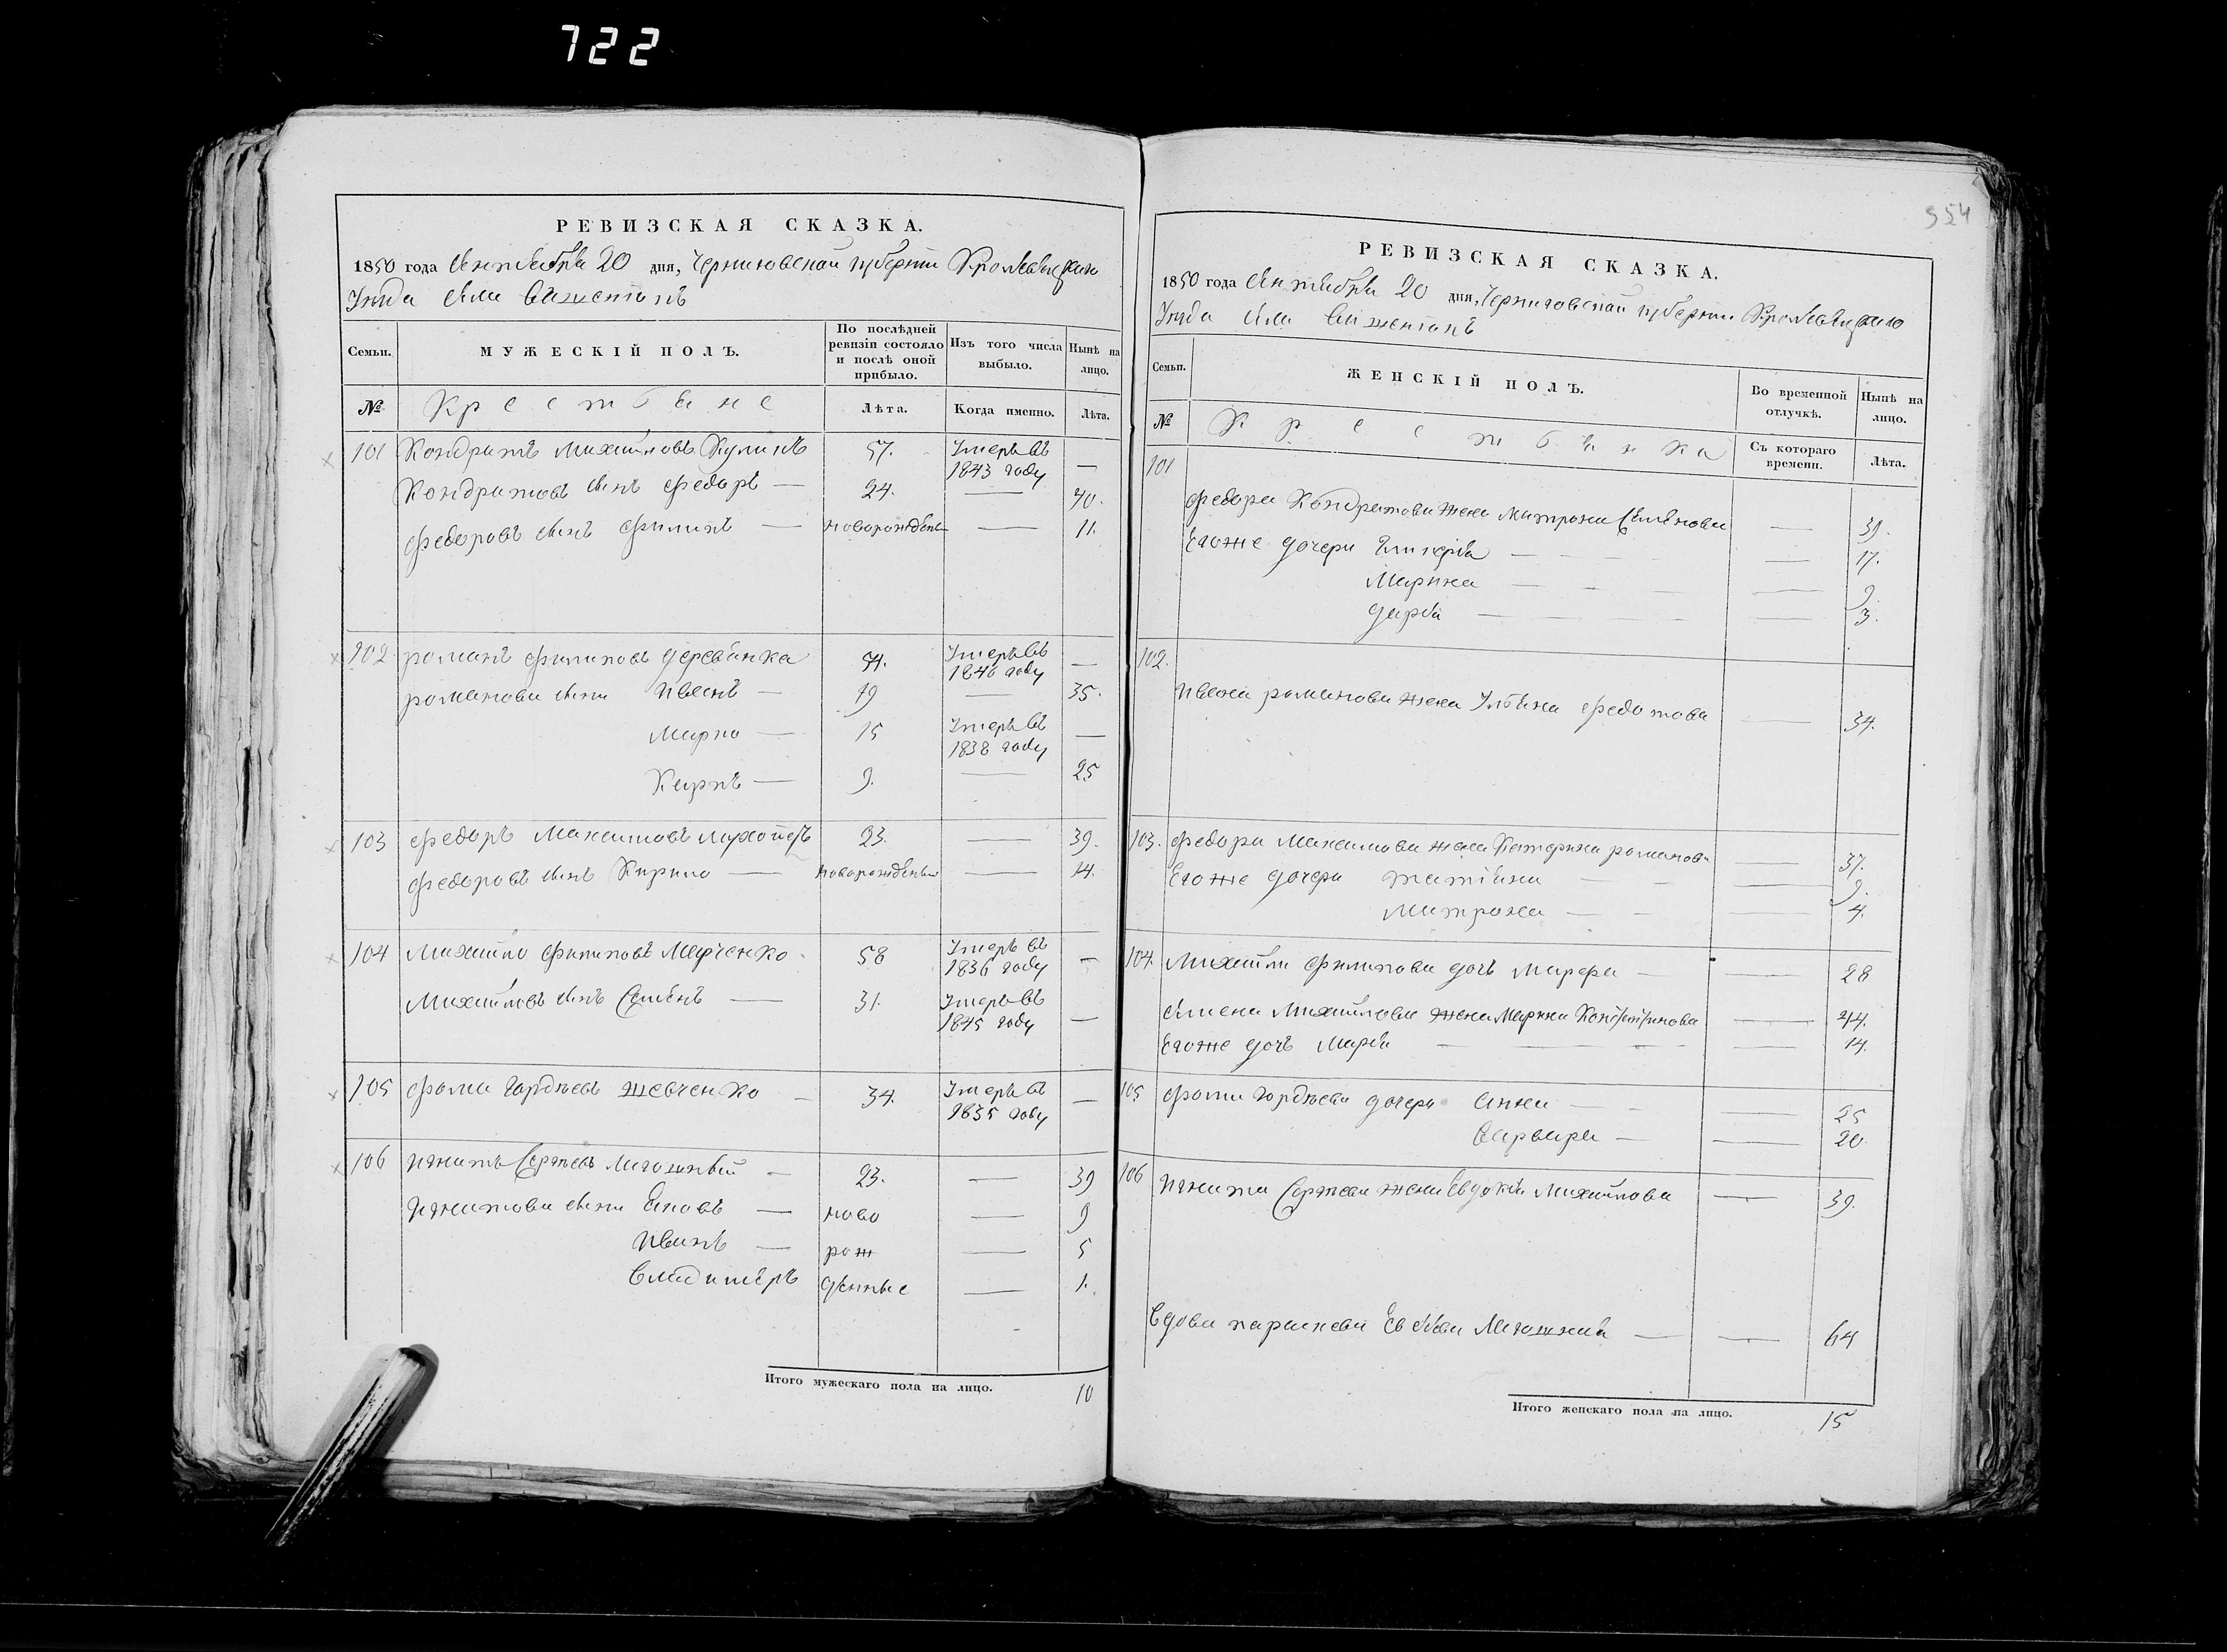 722
РЕВИЗСКАЯ СКАЗКА.
1850 года Октября 20 дня, Черниговской губернии Кролевецкого
Уезда села
Семьи. МУЖЕСКІЙ ПОЛЪ. По послѣдней ревизіи состояло и послѣ оной прибыло. Изъ того числа выбыло. Нынѣ на лицо.
№ Крестьяне Лѣта. Когда именно. Лѣта.
101 Кондратъ Михайловъ Куликъ 57. Умеръ въ 1843 году —
Кондратовъ сынъ Федоръ — 24. — 40.
Федоровъ сынъ Филипъ — новорожденъ — 11.
102 Романъ Филиповъ Деревянка 54. Умеръ въ 1846 году —
Романови сыни Иванъ — 19 — 35.
Марко — 15 Умеръ въ 1838 году —
Карпъ — 9. — 25
103 Федоръ Максимовъ 23. — 39.
Федоровъ сынъ Кирило — новорожденъ — 14.
104 Михайло Филиповъ Марченко. 58 Умеръ въ 1836 году —
Михайловъ сынъ Семенъ — 31. Умеръ въ 1845 году —
105 Фома Гордѣевъ Шевченко — 34. Умеръ въ 1835 году —
106 Игнатъ Сергѣевъ — 23. — 39
Игнатови сыни Яковъ — ново — 9
Иванъ — рож — 5
Владимеръ денные — 1.
Итого мужескаго пола на лицо. 10
954
РЕВИЗСКАЯ СКАЗКА.
1850 года Октября 20 дня, Черниговской губернии Кролевецкого
Уезда села
Семьи. ЖЕНСКІЙ ПОЛЪ. Во временной отлучкѣ. Нынѣ на лицо.
№ Крестьянка Съ котораго времени. Лѣта.
101
Федора Кондратова жена Матрона Семенова — 39.
Егоже дочери Гликерія — — 17.
Марина — — 9.
Дарья — — 3.
102.
Ивана Романова жена Ульяна Федотова — 34.
103. Федора Максимова жена Катерина Романова — 37.
Егоже дочери Татіяна — — 9.
Матрона — — 4.
104. Михайли Филипова дочь Марфа — — 28
Семена Михайлова жена Марина — 44.
Егоже дочь Марья — — 14.
105 Фоми Гордѣева дочери Анна — — 25
Варвара — — 20.
106 Игната Сергѣева жена Евдокія Михайлова — 39.
Вдова Параскева — — 64
Итого женскаго пола на лицо. 15